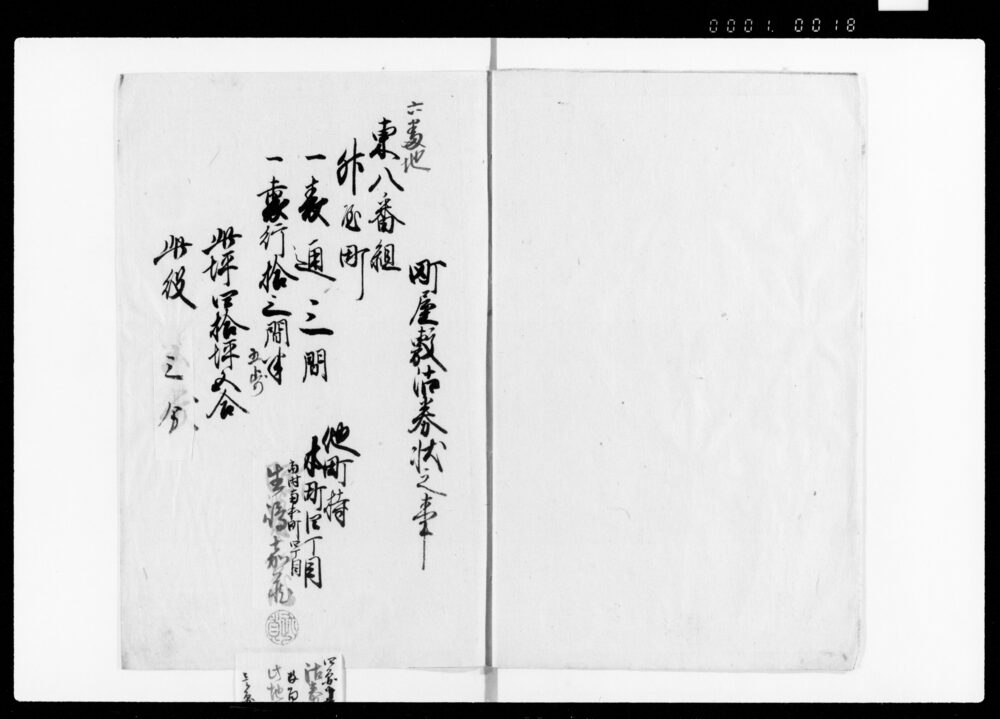 0001. 0018
町屋敷沽券状之事
六番地
東八番組
一表通三間
一裏行拾三間半
五歩
此坪四拾坪五合
此役 三分
他町持
本町四丁目
町四丁目
生嶋嘉蔵
沽券
此地